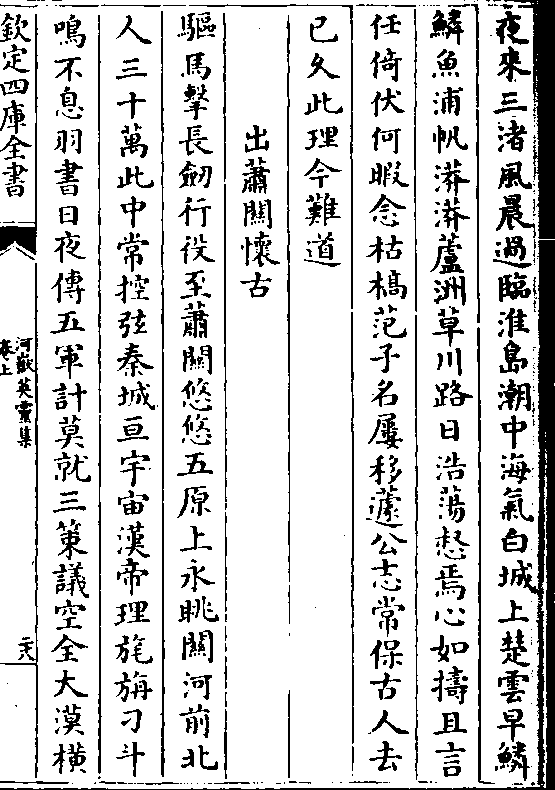 夜來三渚風晨過臨淮島潮中海氣白城上楚雲早鱗
鱗魚浦帆漭漭蘆洲草川路日浩蕩惄焉心如擣且言
任倚伏何暇念枯槁范子名屢移蘧公志常保古人去
已久此理今難道
出蕭關懷古
驅馬擊長劒行役至蕭關悠悠五原上永眺關河前北
人三十萬此中常控弦秦城亘宇宙漢帝理旄旃刁斗
鳴不息羽書日夜傳五軍計莫就三策議空全大漠橫
欽定四庫全書
河嶽英靈集
卷上
二十八